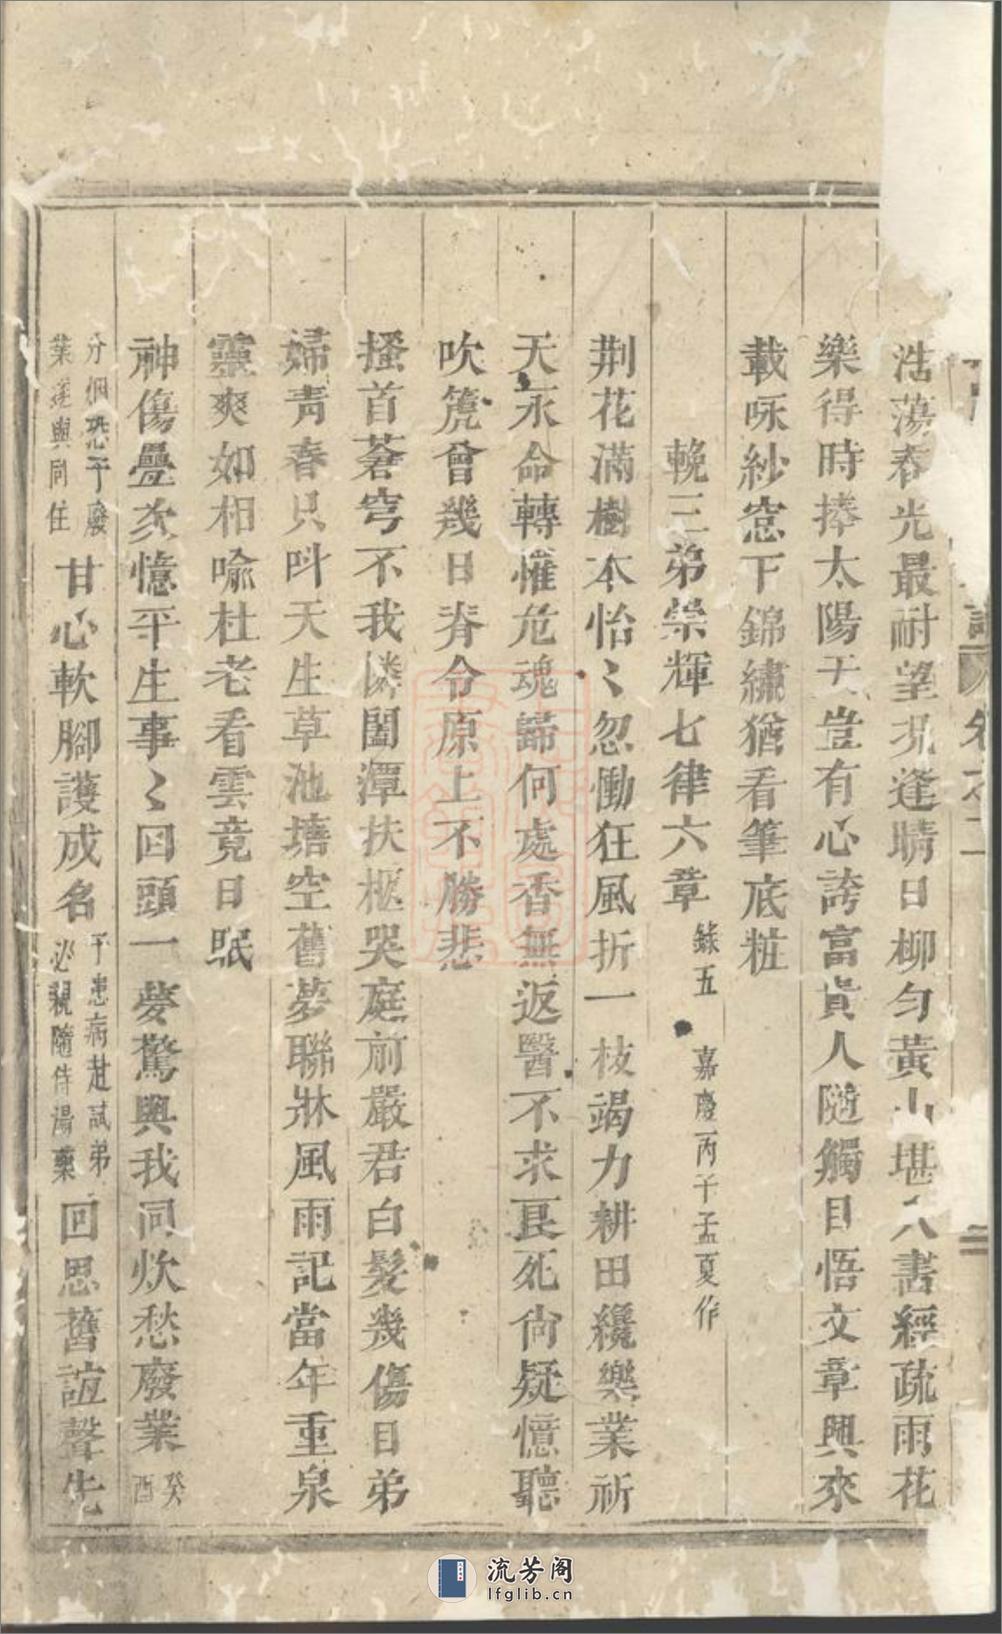 浩蕩春光最耐望况逢晴日柳勻黃山堪入畵經疏雨花
樂得時捧太陽天豈有心誇富貴人隨觸目悟文章興來
載咏紗窓下錦繡猶看筆底粧
輓三弟崇輝七律六章 錄五 嘉慶丙子孟夏作
荆花滿樹本怡〻忽慟狂風折一枝竭力耕田纔樂業祈
天永命轉懽危魂歸何處香無返醫不求良死尙疑憶聽
吹篪曾幾日脊令原上不勝悲
搔首蒼穹不我憐闔潭扶柩哭庭前嚴君白髮幾傷目弟
婦靑春只呌天生草池塘空舊夢聯牀風雨記當年重泉
靈爽如相喩杜老看雲竟日眠
神傷疊次憶平生事〻囘頭一夢驚與我同炊愁廢業 癸酉
分恐予廢
業遂與同住
甘心軟腳護成名
予患病赴試弟
必親隨侍湯藥
回思舊誼聲先
卷之二
流芳阁
lfglib.cn